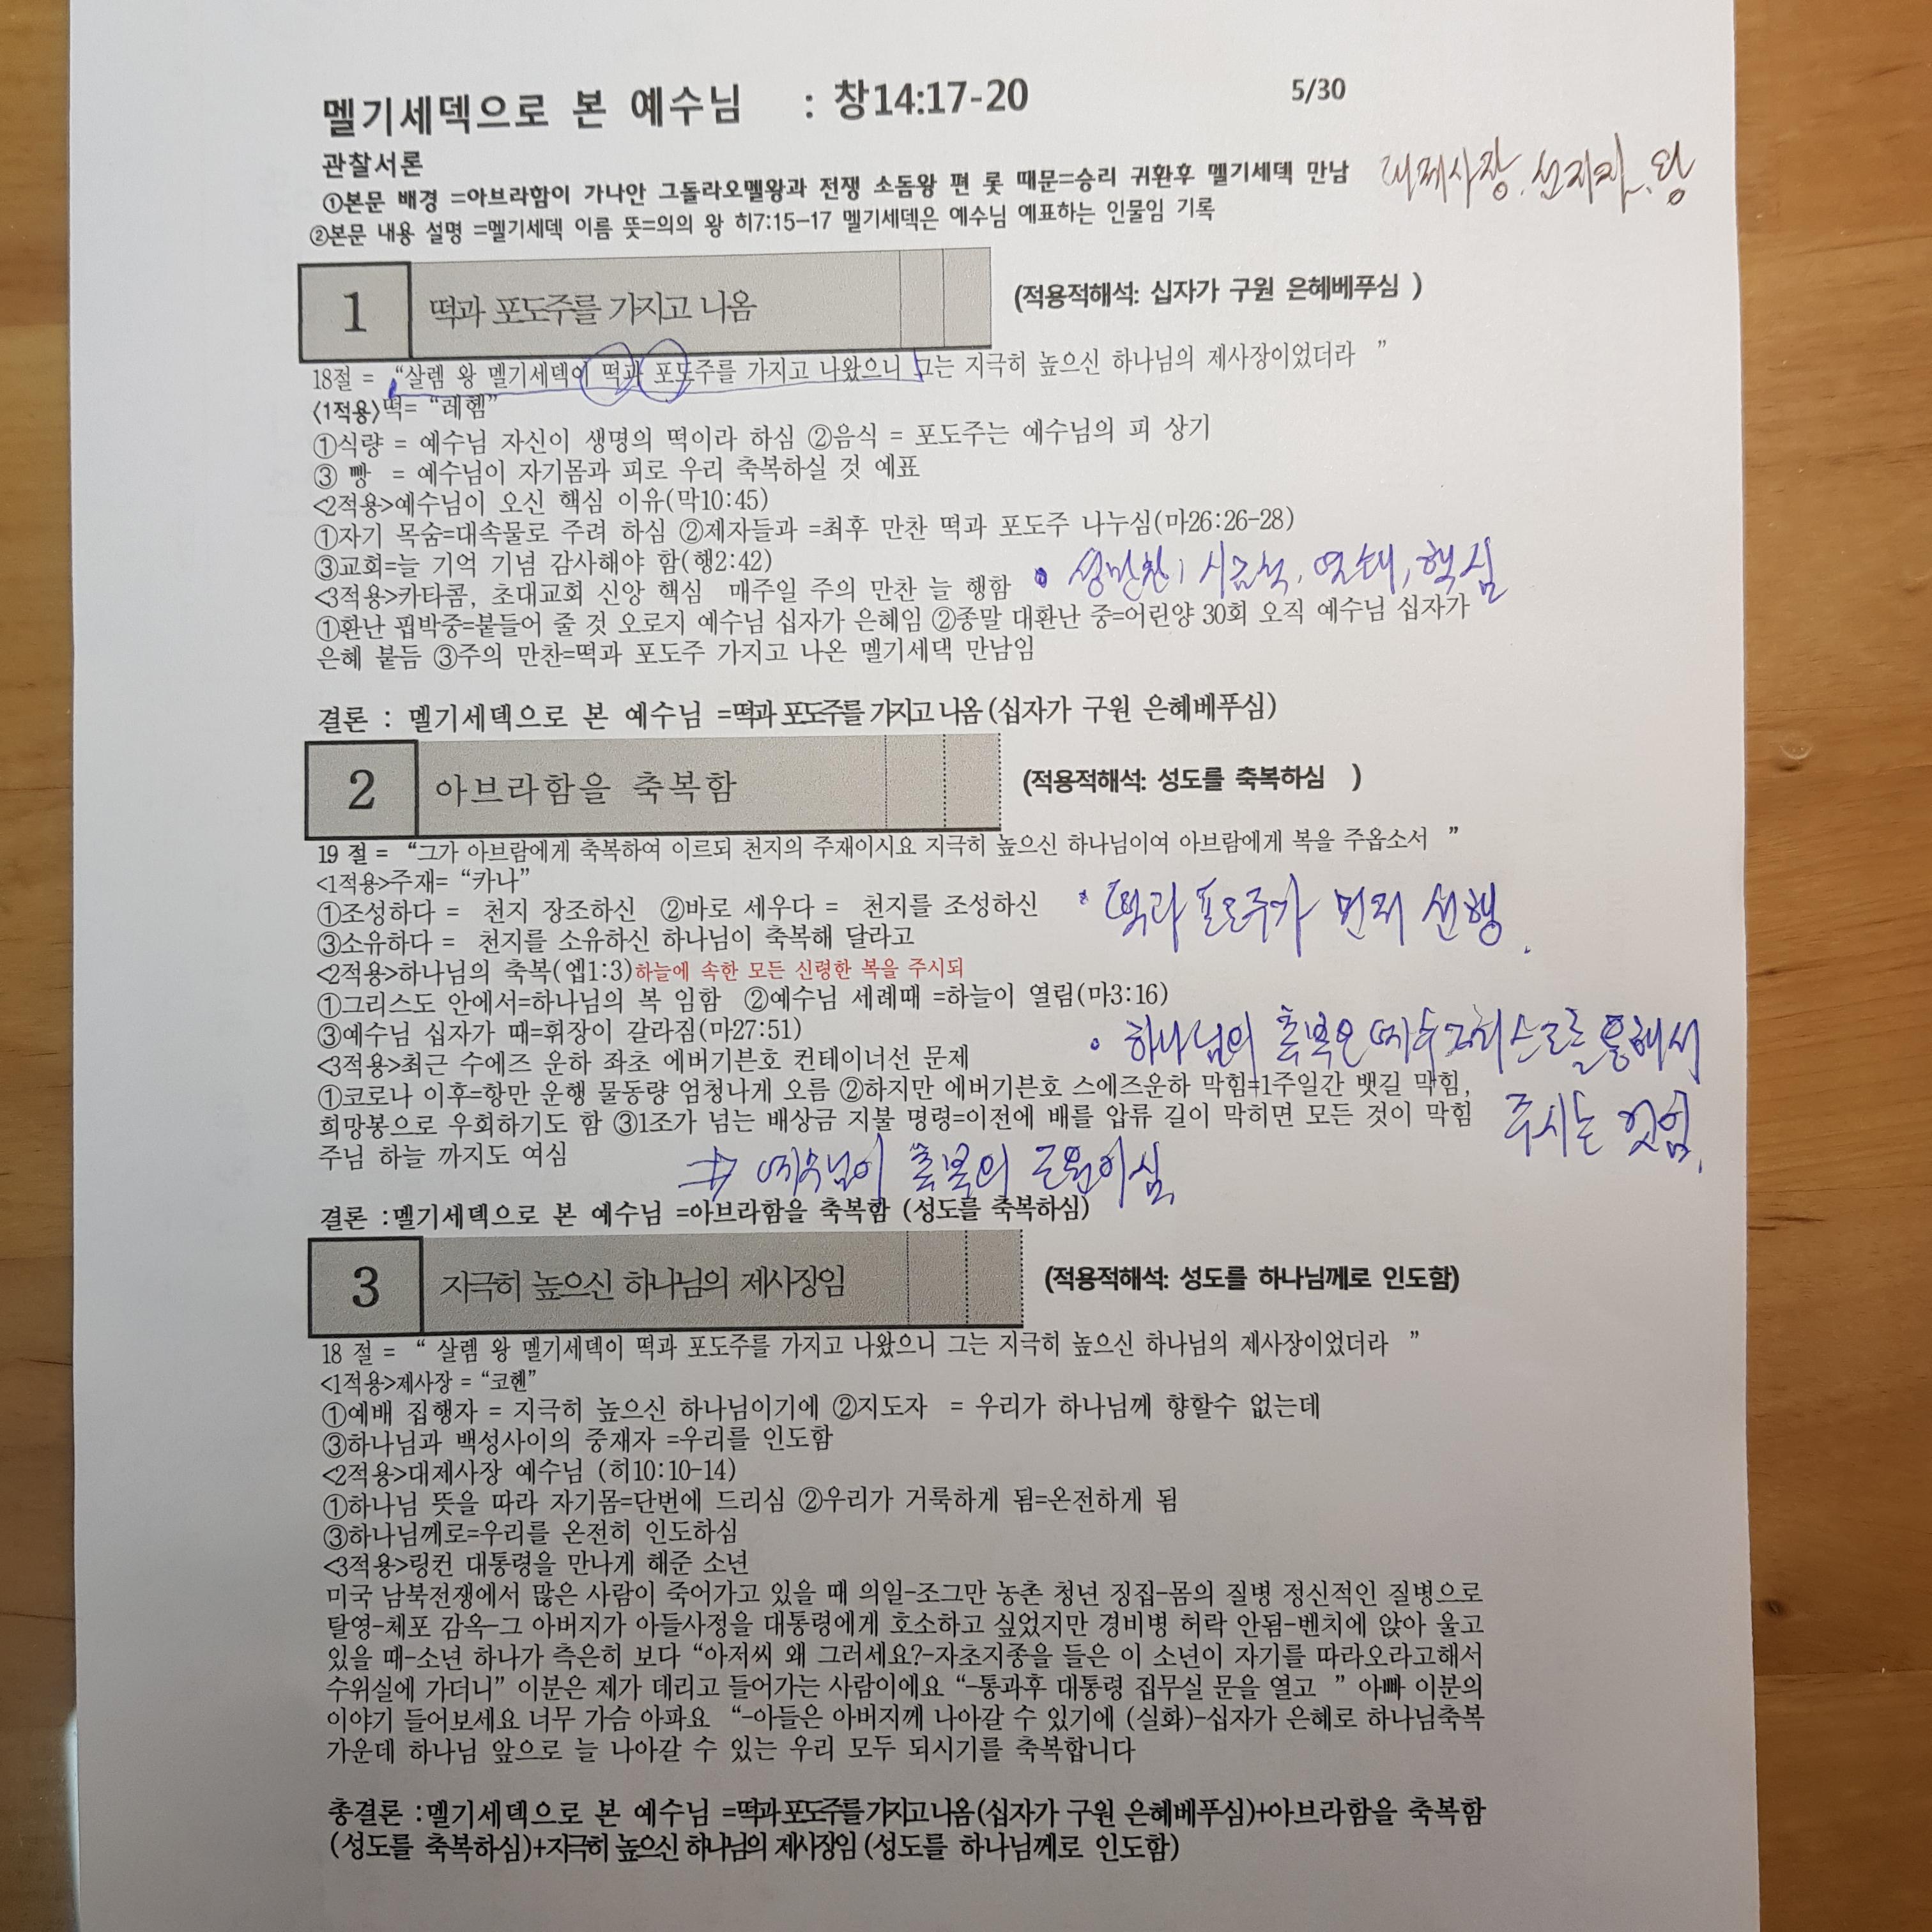 멜기세덱으로 본 예수님 : 창14:17-20 5/30
관찰서론
①본문 배경 =아브라함이 가나안 그돌라오멜왕과 전쟁 소돔왕 편 롯 때문=승리 귀환후 멜기세덱 만남 대제사장, 선지자, 왕
②본문 내용 설명 =멜기세덱 이름 뜻=의의 왕 히7:15-17 멜기세덱은 예수님 예표하는 인물임 기록
1 떡과 포도주를 가지고 나옴 (적용적해석: 십자가 구원 은혜베푸심 )
18절 = “살렘 왕 멜기세덱이 떡과 포도주를 가지고 나왔으니 그는 지극히 높으신 하나님의 제사장이었더라 ”
<1적용>떡= “레헴”
①식량 = 예수님 자신이 생명의 떡이라 하심 ②음식 = 포도주는 예수님의 피 상기
③ 빵 = 예수님이 자기몸과 피로 우리 축복하실 것 예표
<2적용>예수님이 오신 핵심 이유(막10:45)
①자기 목숨=대속물로 주려 하심 ②제자들과 =최후 만찬 떡과 포도주 나누심(마26:26-28)
③교회=늘 기억 기념 감사해야 함(행2:42)
<3적용>카타콤, 초대교회 신앙 핵심 매주일 주의 만찬 늘 행함 • 성만찬, 핵심
①환난 핍박중=붙들어 줄 것 오로지 예수님 십자가 은혜임 ②종말 대환난 중=어린양 30회 오직 예수님 십자가
은혜 붙듬 ③주의 만찬=떡과 포도주 가지고 나온 멜기세댁 만남임
결론 : 멜기세덱으로 본 예수님 =떡과 포도주를 가지고 나옴 (십자가 구원 은혜베푸심)
2 아브라함을 축복함 (적용적해석: 성도를 축복하심 )
19 절 = “그가 아브람에게 축복하여 이르되 천지의 주재이시요 지극히 높으신 하나님이여 아브람에게 복을 주옵소서 ”
<1적용>주재= “카나”
①조성하다 = 천지 장조하신 ②바로 세우다 = 천지를 조성하신 • 떡과 포도주가 먼저 선행.
③소유하다 = 천지를 소유하신 하나님이 축복해 달라고
<2적용>하나님의 축복(엡1:3)하늘에 속한 모든 신령한 복을 주시되
①그리스도 안에서=하나님의 복 임함 ②예수님 세례때 =하늘이 열림(마3:16)
③예수님 십자가 때=휘장이 갈라짐(마27:51) • 하나님의 축복은 예수 그리스도를 통해서
<3적용>최근 수에즈 운하 좌초 에버기븐호 컨테이너선 문제
①코로나 이후=항만 운행 물동량 엄청나게 오름 ②하지만 에버기븐호 스에즈운하 막힘=1주일간 뱃길 막힘,
희망봉으로 우회하기도 함 ③1조가 넘는 배상금 지불 명령=이전에 배를 압류 길이 막히면 모든 것이 막힘 주시는 것임.
주님 하늘 까지도 여심 ⇒ 예수님이 축복의 근원이심.
결론 :멜기세덱으로 본 예수님 =아브라함을 축복함 (성도를 축복하심)
3 지극히 높으신 하나님의 제사장임 (적용적해석: 성도를 하나님께로 인도함)
18 절 = “ 살렘 왕 멜기세덱이 떡과 포도주를 가지고 나왔으니 그는 지극히 높으신 하나님의 제사장이었더라 ”
<1적용>제사장 = “코헨”
①예배 집행자 = 지극히 높으신 하나님이기에 ②지도자 = 우리가 하나님께 향할수 없는데
③하나님과 백성사이의 중재자 =우리를 인도함
<2적용>대제사장 예수님 (히10:10-14)
①하나님 뜻을 따라 자기몸=단번에 드리심 ②우리가 거룩하게 됨=온전하게 됨
③하나님께로=우리를 온전히 인도하심
<3적용>링컨 대통령을 만나게 해준 소년
미국 남북전쟁에서 많은 사람이 죽어가고 있을 때 의일-조그만 농촌 청년 징집-몸의 질병 정신적인 질병으로
탈영-체포 감옥-그 아버지가 아들사정을 대통령에게 호소하고 싶었지만 경비병 허락 안됨-벤치에 앉아 울고
있을 때-소년 하나가 측은히 보다 “아저씨 왜 그러세요?-자초지종을 들은 이 소년이 자기를 따라오라고해서
수위실에 가더니” 이분은 제가 데리고 들어가는 사람이에요 “-통과후 대통령 집무실 문을 열고 ” 아빠 이분의
이야기 들어보세요 너무 가슴 아파요 “-아들은 아버지께 나아갈 수 있기에 (실화)-십자가 은혜로 하나님축복
가운데 하나님 앞으로 늘 나아갈 수 있는 우리 모두 되시기를 축복합니다
총결론 :멜기세덱으로 본 예수님 =떡과 포도주를 가지고 나옴 (십자가 구원 은혜베푸심)+아브라함을 축복함
(성도를 축복하심)+지극히 높으신 하나님의 제사장임 (성도를 하나님께로 인도함)